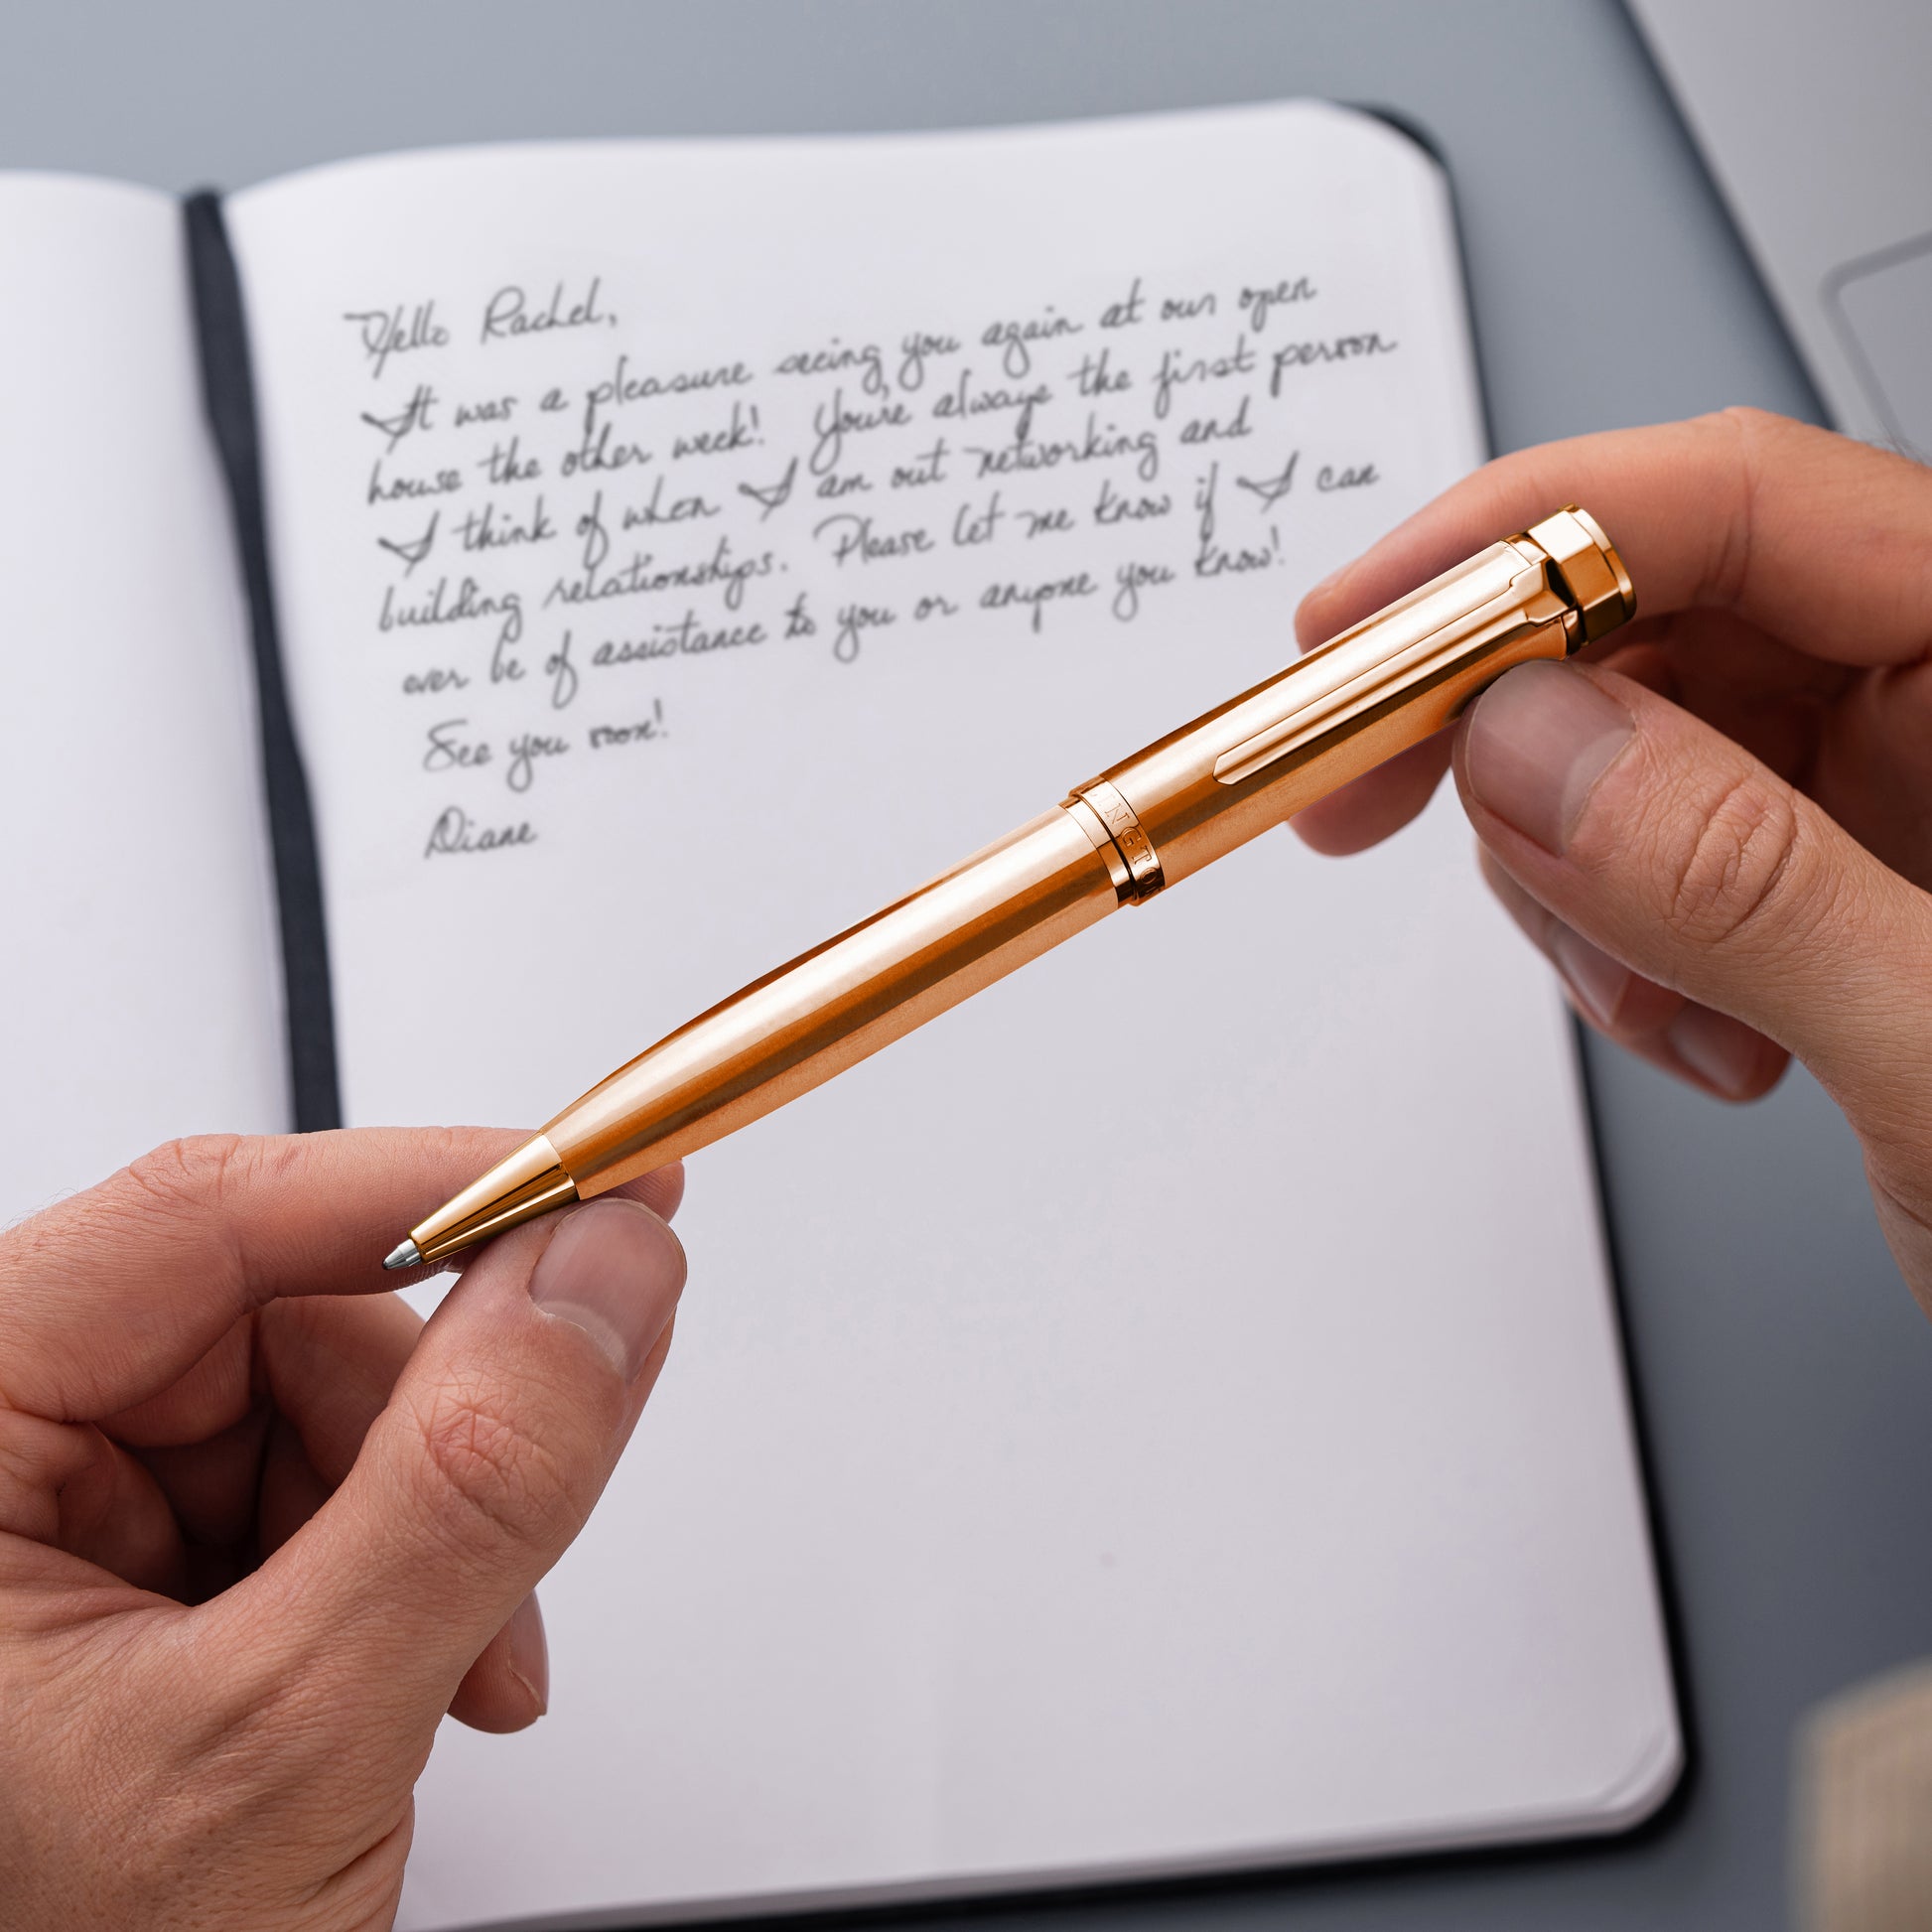 Hello Rachel,
It was a pleasure seeing you again at our open
house the other week! You're always the first person
I think of when I am out networking and
building relationships. Please let me know if I can
ever be of assistance to you or anyone you know!
See you soon!
Diane
INGTO